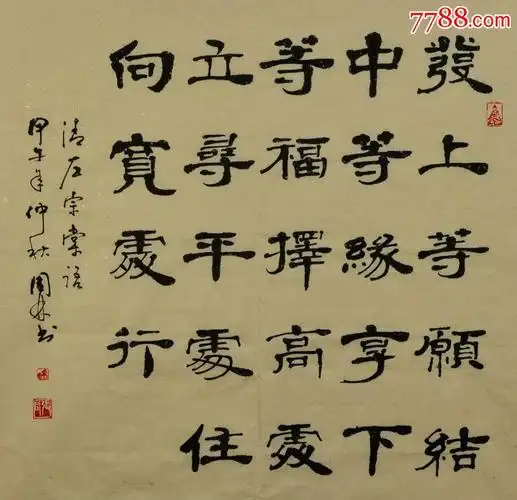 7788.com
發上等願結
中等緣享下
等福擇高處
立尋平處住
向寬處行
清左宗棠語
甲午年仲秋書